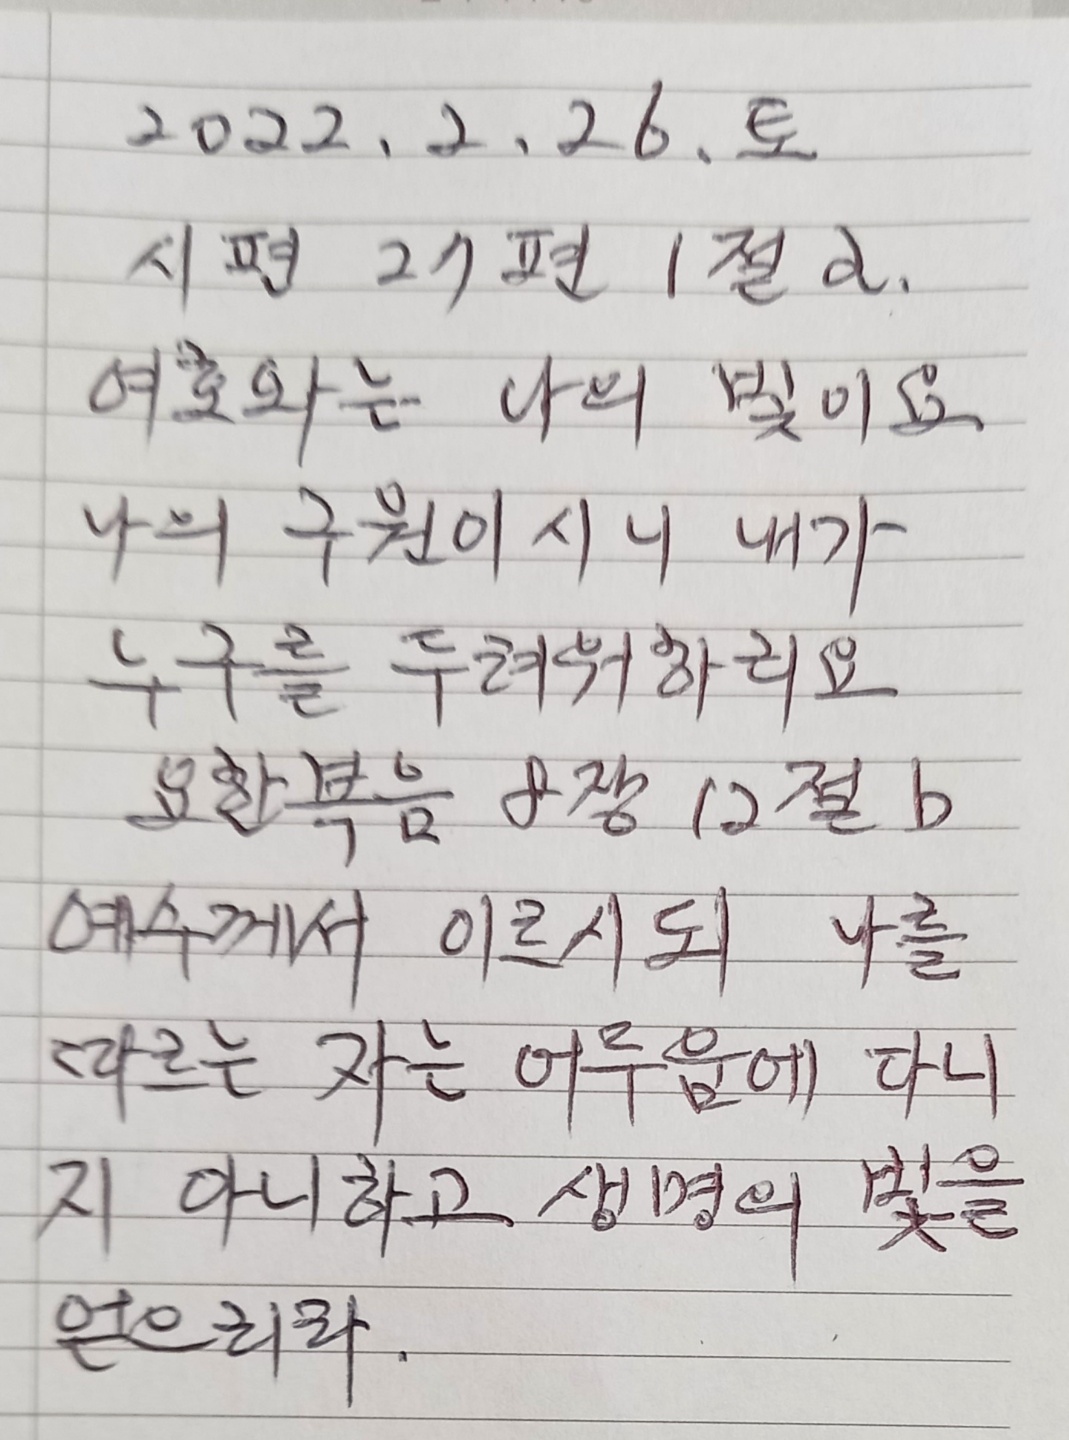 2022. 2. 26. 토
시편 27편 1절 a.
여호와는 나의 빛이요
나의 구원이시니 내가
누구를 두려워하리요
요한복음 8장 12절 b
예수께서 이르시되 나를
따르는 자는 어두움에 다니
지 아니하고 생명의 빛을
얻으리라.